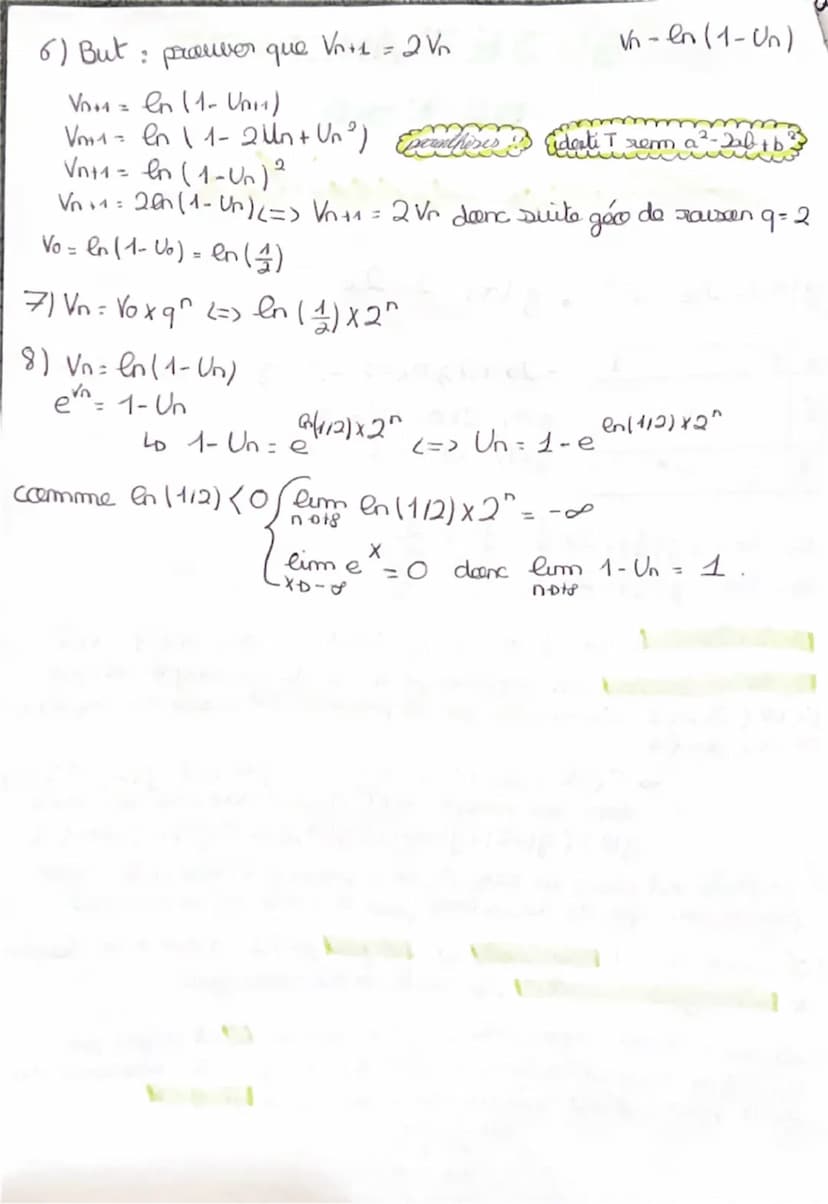 6) But : prouver que Vn+1 = 2Vn    Vn - ln(1-Un)
Vn+1 = ln(1-Un+1)
Vn+1 = ln(1-2Un+Un²)    parenthèses !    identiT rem a²-2ab+b²
Vn+1 = ln(1-Un)²
Vn+1 = 2ln(1-Un) <=> Vn+1 = 2Vn donc suite géo de raison q=2
V0 = ln(1-U0) = ln(1/2)
7) Vn = V0 x qⁿ <=> ln(1/2) x 2ⁿ
8) Vn = ln(1-Un)
e^Vn = 1-Un
↳ 1-Un = e^ln(1/2)x2ⁿ <=> Un = 1-e^ln(1/2)x2ⁿ
comme ln(1/2) < 0 { lim n→+∞ ln(1/2) x 2ⁿ = -∞
lim x→-∞ e^x = 0 donc lim n→+∞ 1-Un = 1.